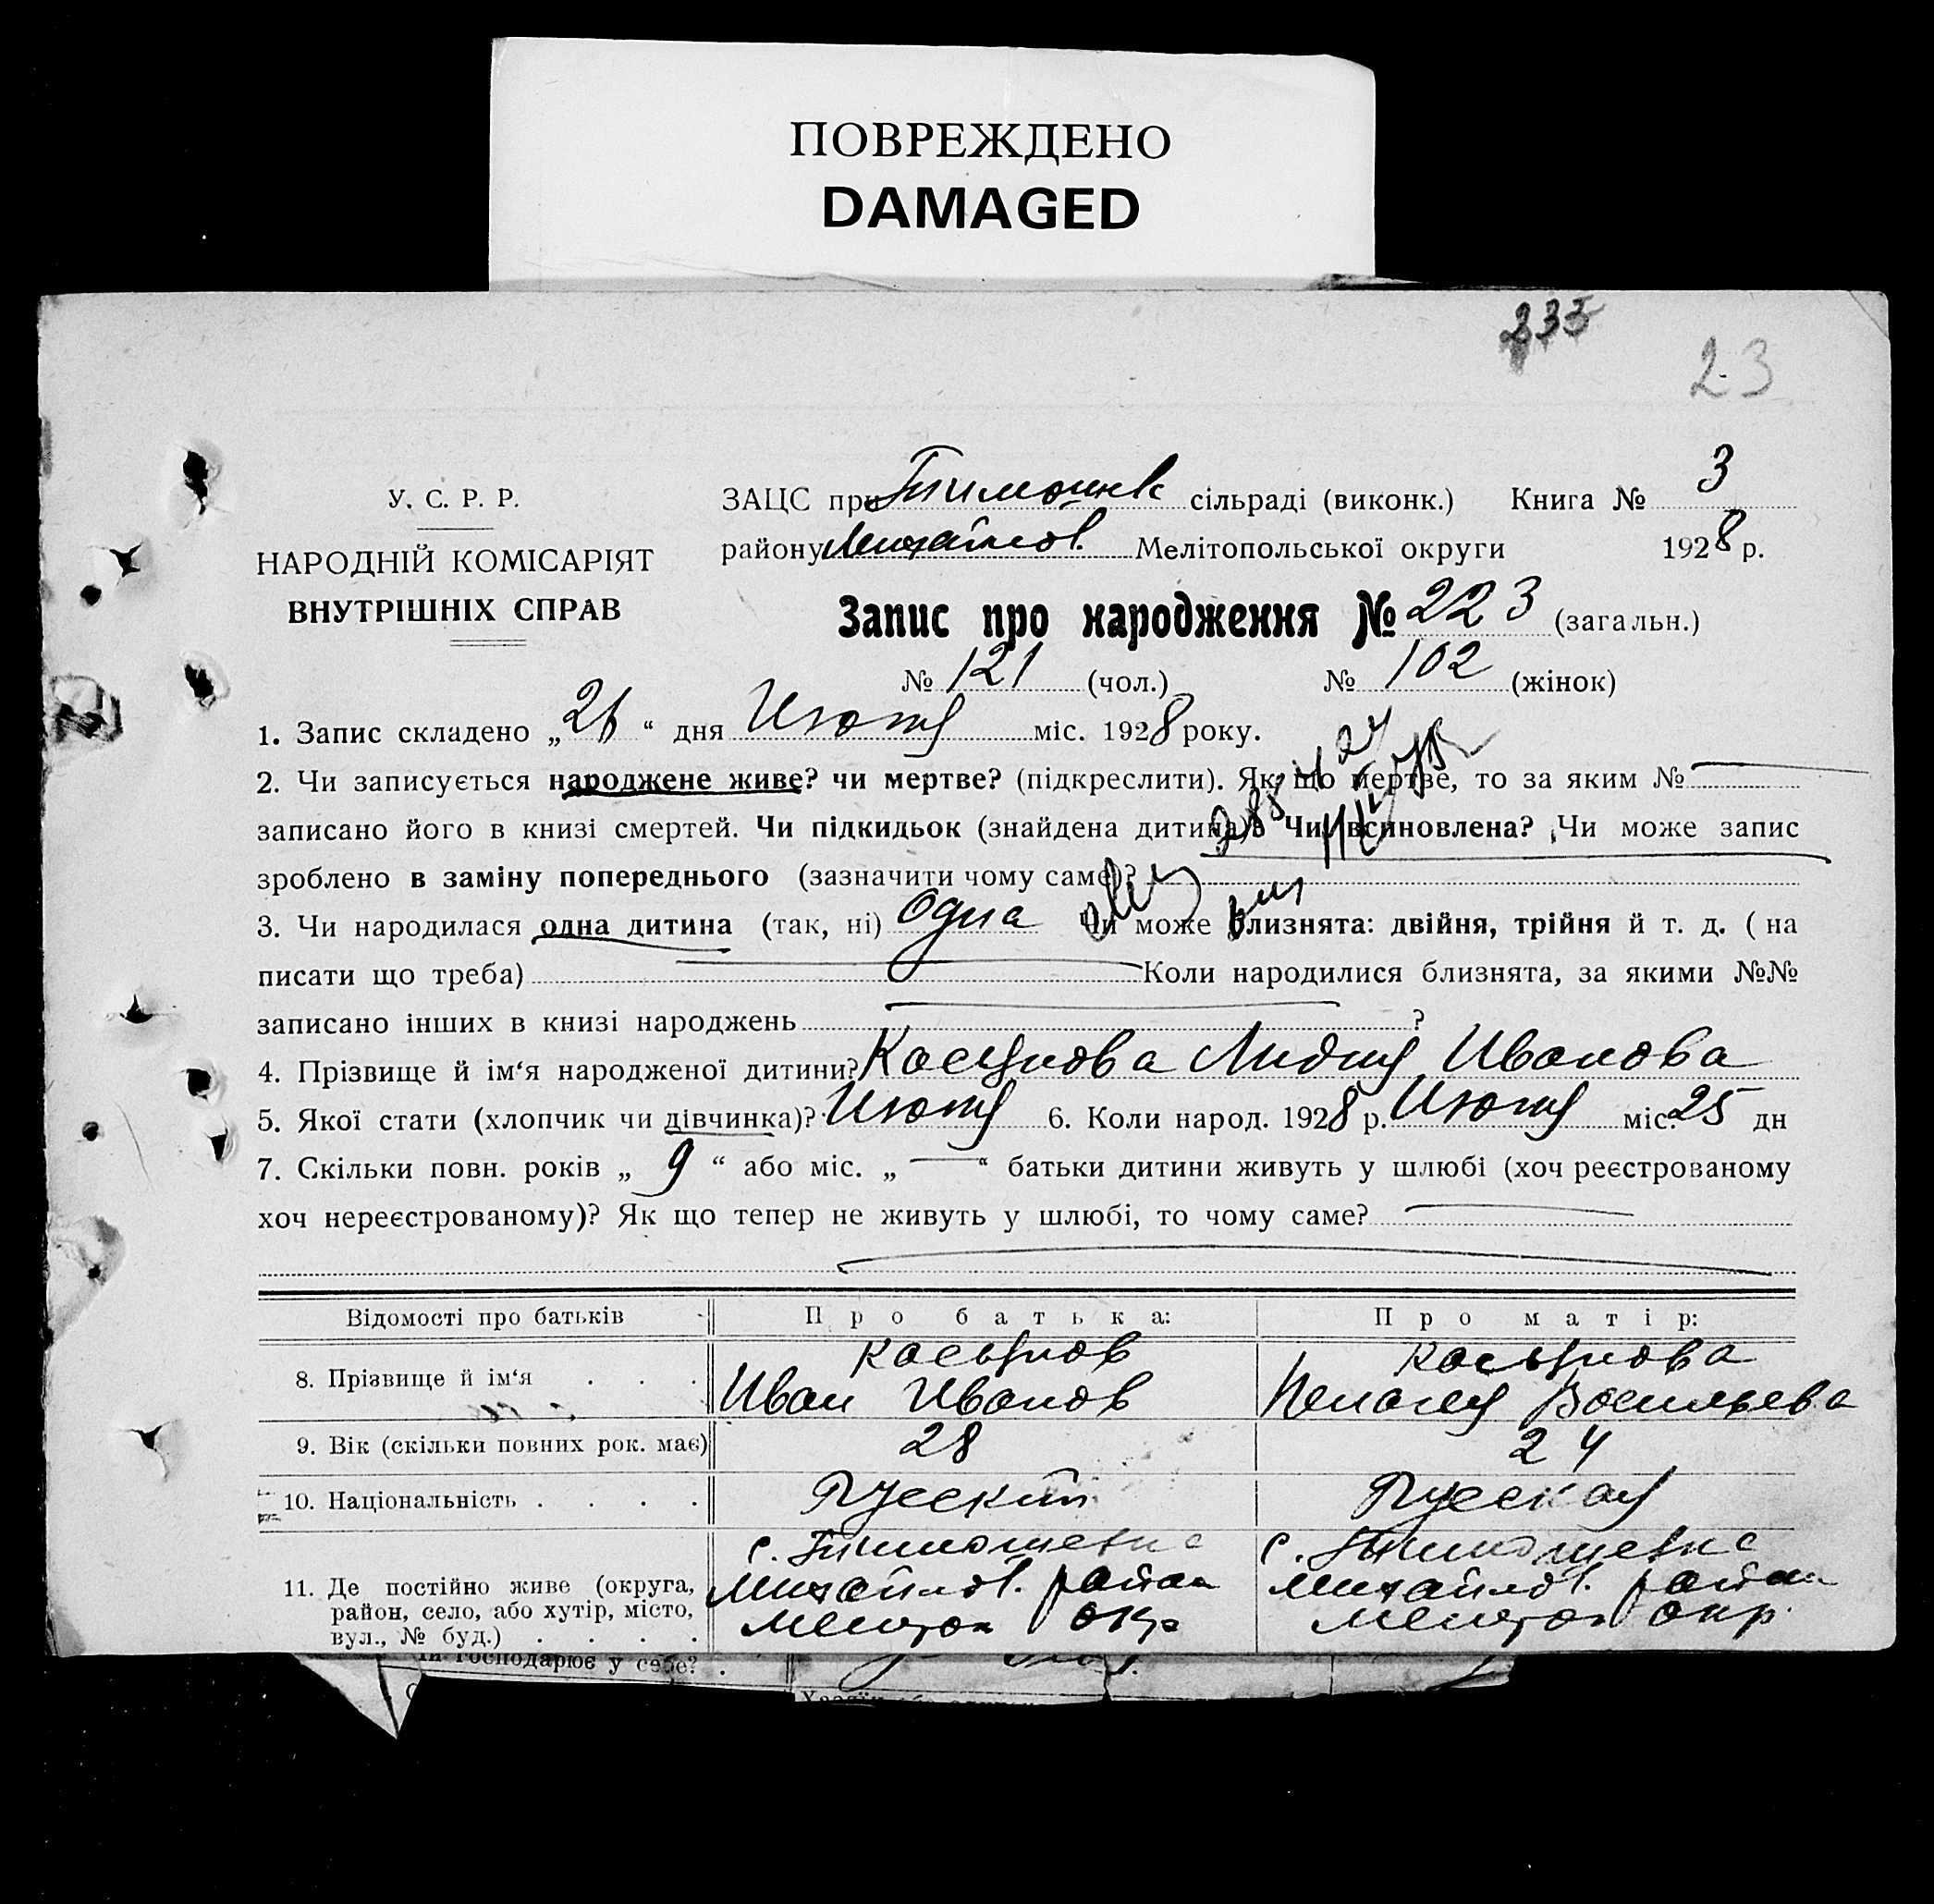 ПОВРЕЖДЕНО
DAMAGED
233
23
У. С. Р. Р.
НАРОДНІЙ КОМІСАРІЯТ
ВНУТРІШНІХ СПРАВ
ЗАЦС при Тимошівк сільраді (виконк.) Книга № 3
району Михайлов. Мелітопольської округи 1928 р.
Запис про народження № 223 (загальн.)
№ 121 (чол.) № 102 (жінок)
1. Запис складено „26“ дня Июля міс. 1928 року.
2. Чи записується народжене живе? чи мертве? (підкреслити). Як що мертве, то за яким №
записано його в книзі смертей. Чи підкидьок (знайдена дитина)? Чи всиновлена? Чи може запис
зроблено в заміну попереднього (зазначити чому саме)?
3. Чи народилася одна дитина (так, ні) Одна Чи може близнята: двійня, трійня й т. д. ( на
писати що треба) Коли народилися близнята, за якими №№
записано інших в книзі народжень ?
4. Прізвище й ім‘я народженої дитини? Лидия Иванова
5. Якої стати (хлопчик чи дівчинка)? Июля 6. Коли народ. 1928 р. Июля міс. 25 дн
7. Скільки повн. років „ 9 “ або міс. „ — “ батьки дитини живуть у шлюбі (хоч реєстрованому
хоч нереєстрованому)? Як що тепер не живуть у шлюбі, то чому саме?
Відомості про батьків Про батька: Про матір:
8. Прізвище й ім‘я . . .
Иван Иванов Пелагея Васильева
9. Вік (скільки повних рок. має) 28 24
10. Національність . . . . Русский Русская
с. Тимошевка с. Тимошевка
11. Де постійно живе (округа, Михайлов. район Михайлов. район
район, село, або хутір, місто, Мелитоп окр Мелитоп окр.
вул., № буд.) . . . .
чи господарює у себе? .